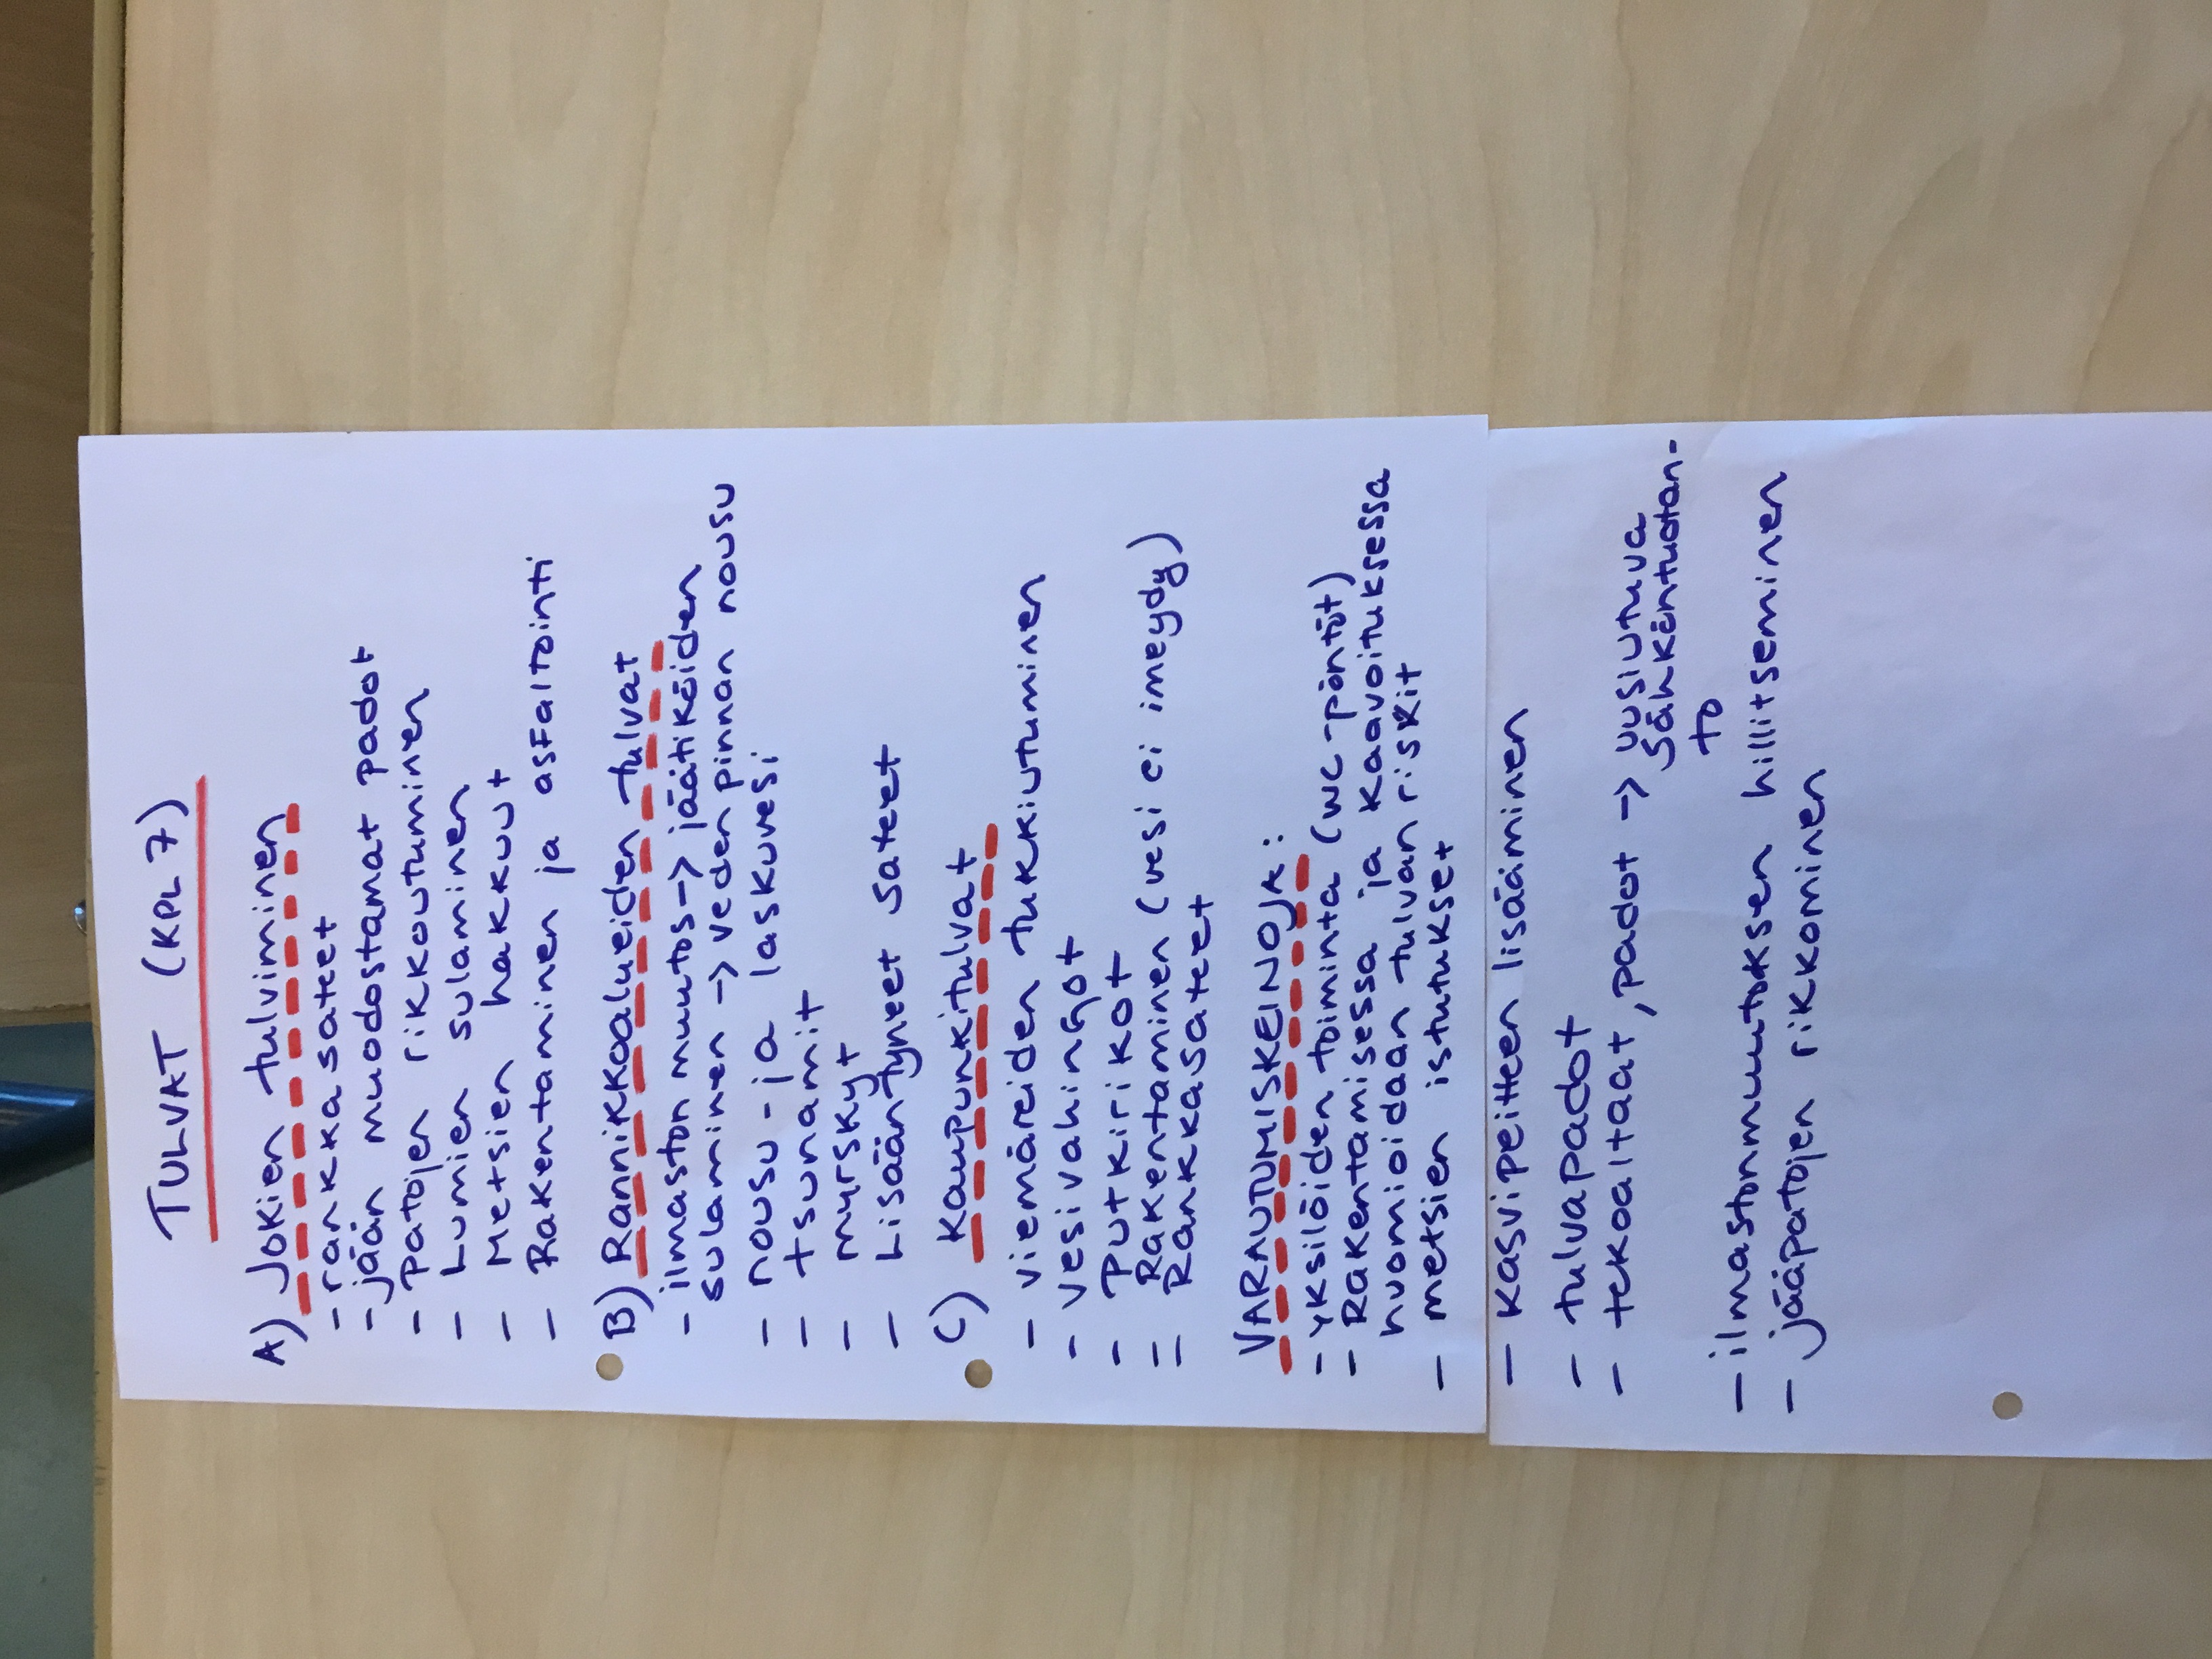 TULVAT (KPL 7)
A) Jokien tulviminen
- rankkasateet
- jään muodostamat padot
- patojen rikkoutuminen
- Lumien sulaminen
- Metsien hakkuut
- Rakentaminen ja asfaltointi
B) Rannikkoalueiden tulvat
- ilmaston muutos -> jäätiköiden
sulaminen -> veden pinnan nousu
- nousu- ja laskuvesi
- tsunamit
- myrskyt
- Lisääntyneet sateet
C) Kaupunkitulvat
- viemäreiden tukkiutuminen
- vesivahingot
- Putkirikot
- Rakentaminen (vesi ei imeydy)
- Rankkasateet
VARAUTUMISKEINOJA:
- yksilöiden toiminta (wc-pöntöt)
- Rakentamisessa ja kaavoituksessa
huomioidaan tulvan riskit
- metsien istutukset
- kasvipeitteen lisääminen
- tulvapadot
- tekoaltaat, padot -> uusiutuva
sähköntuotan-
to
- ilmastonmuutoksen hillitseminen
- jääpatojen rikkominen